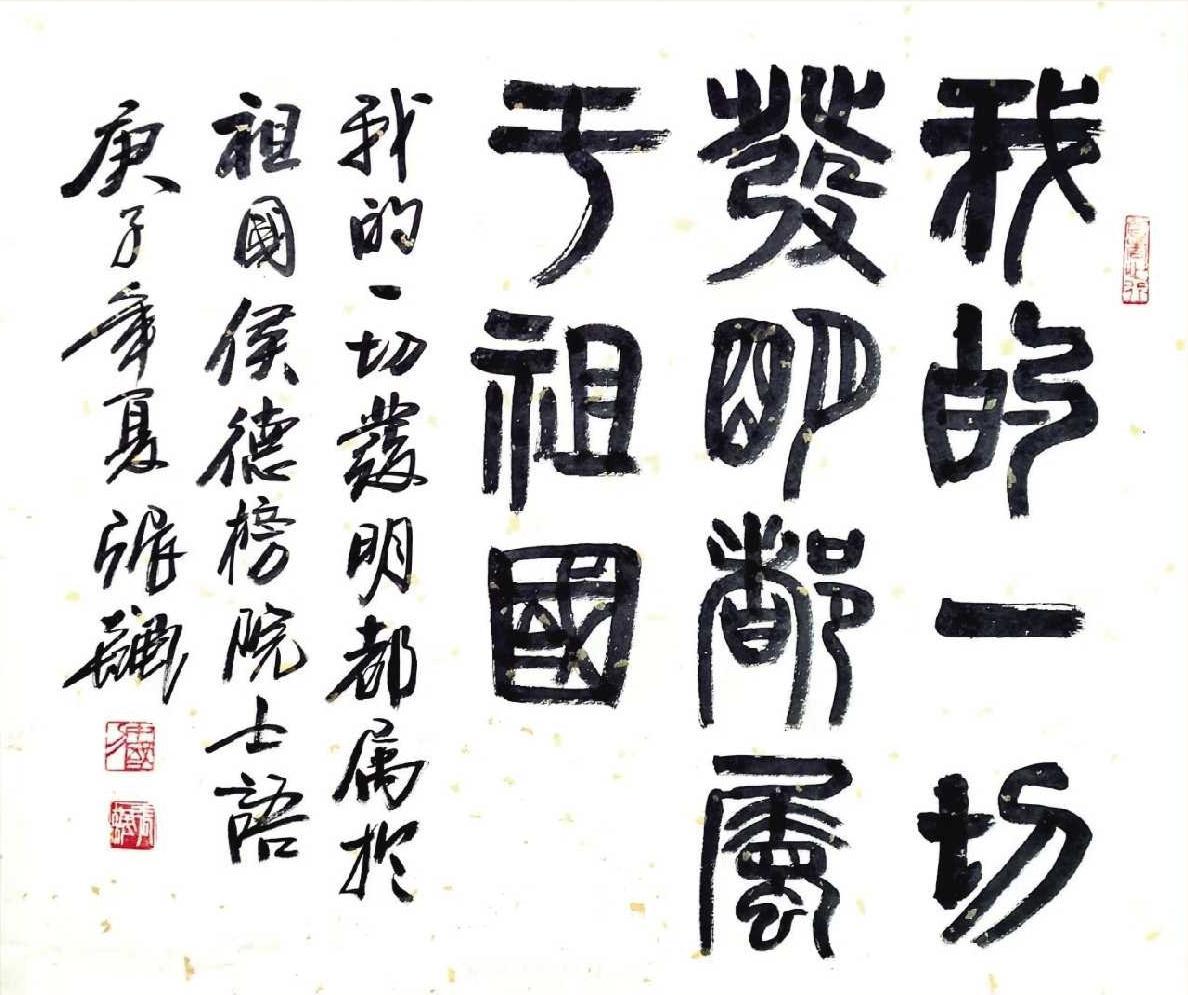 我的一切
發明都屬
于祖國
我的一切發明都属於
祖國侯德榜院士語
庚子年夏張